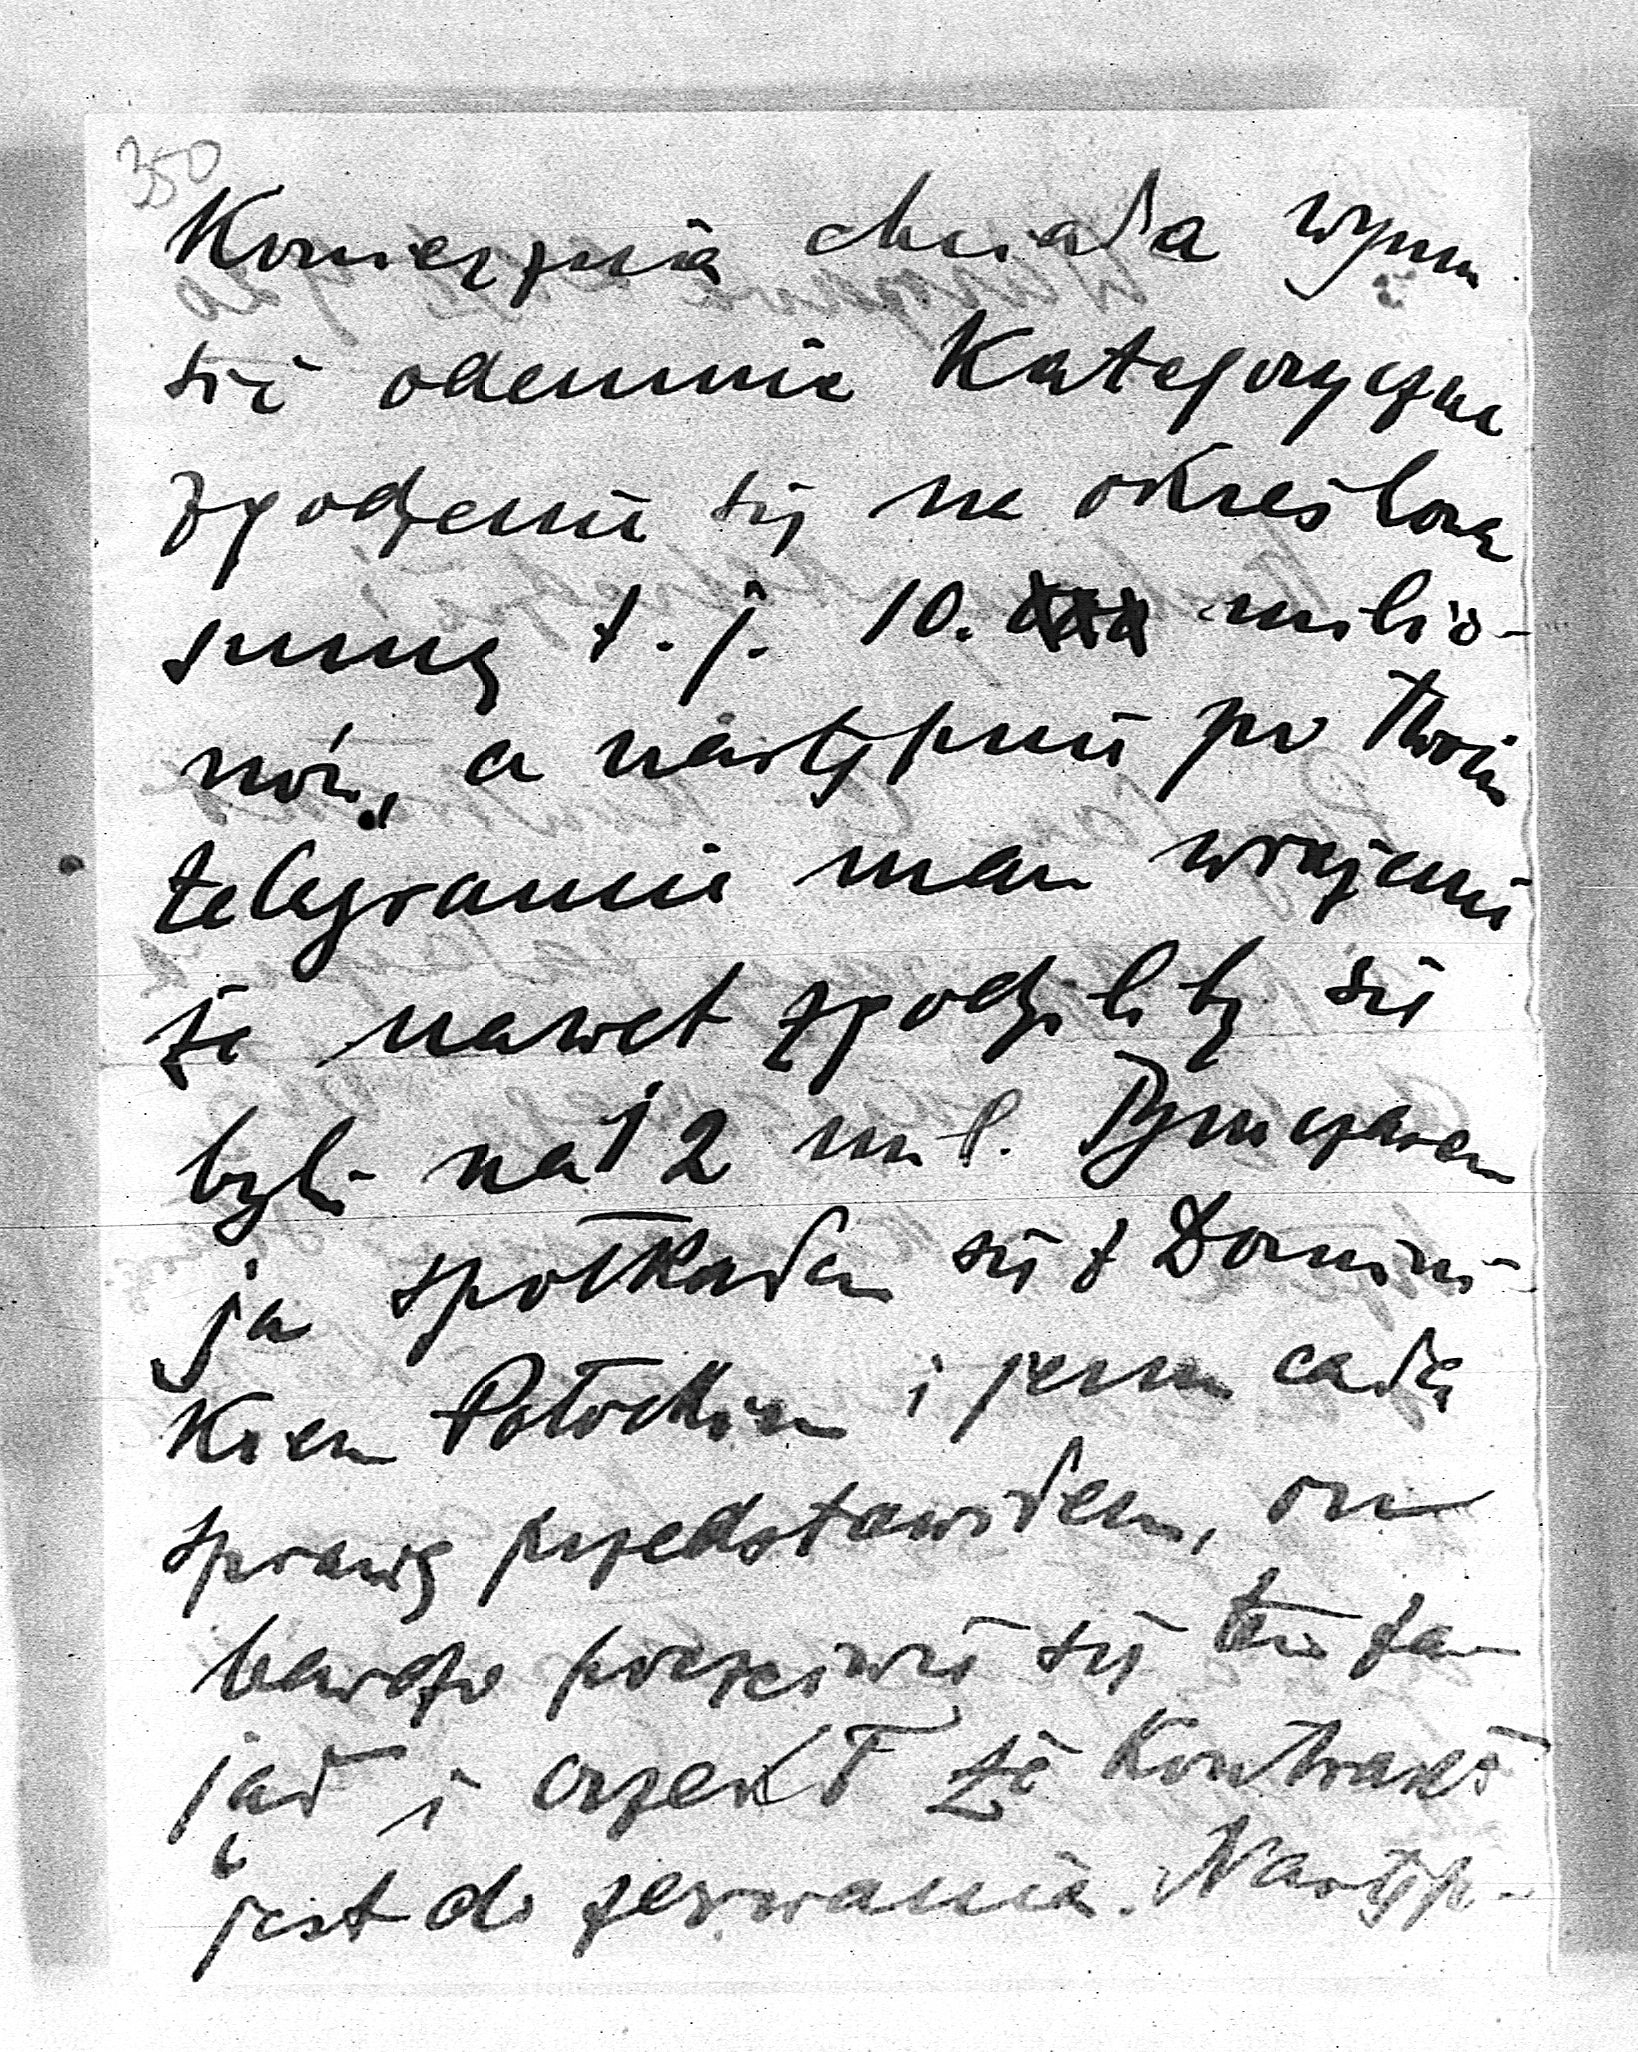 350
Koniecznie chciała wymu
sić odemnie Kategoryczne
zgodzenie się na określoną
sumę t. j. 10. milio-
nów, a następnie po Twoim
telegramie mam wrażenie
że nawet zgodziliby się
byli na 12 mil. Tymczasem
ja spotkałem się z Domini-
Kiem Potockim i jemu całą
sprawę przedstawiłem, on
bardzo poczciwie się tem za-
jął i orzekł że Kontrakt
jest do zerwania. Następ-